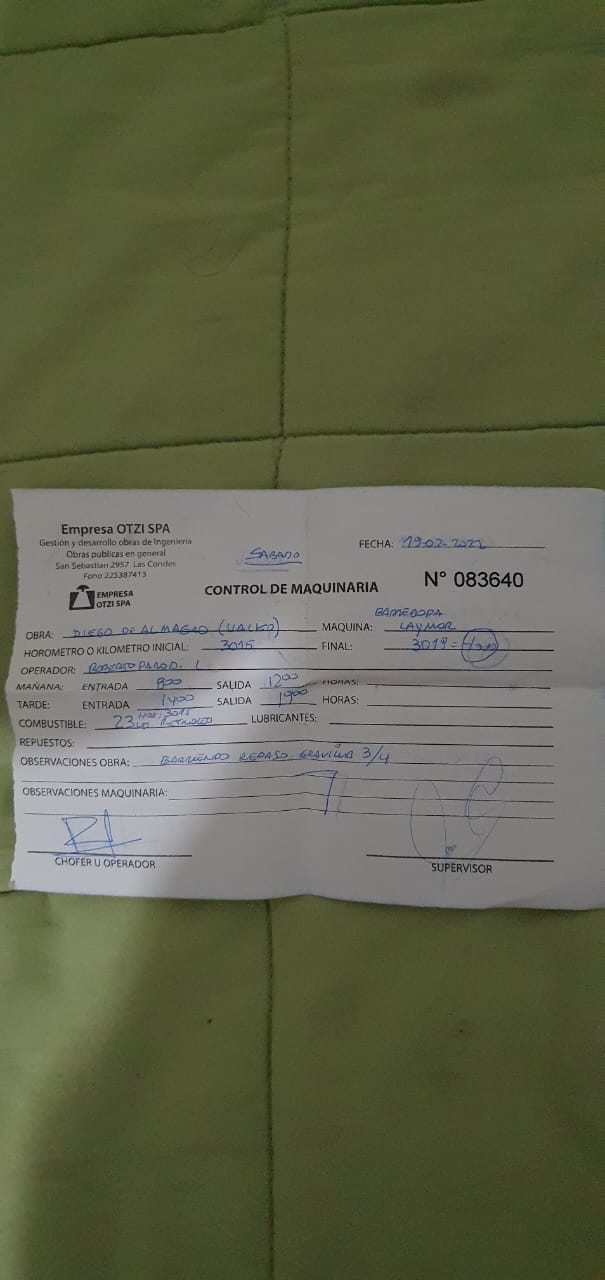 Empresa OTZI SPA
Gestión y desarrollo obras de Ingeniería
Obras publicas en general
San Sebastian 2957 Las Condes
Fono 225387413
EMPRESA
OTZI SPA
SABADO
FECHA: 19-02-2022
CONTROL DE MAQUINARIA
N° 083640
BARREDORA
OBRA: DIEGO DE ALMAGRO (UALKP) MAQUINA: LAYMOR
HOROMETRO O KILOMETRO INICIAL: 3015 FINAL: 3019 =
OPERADOR: ROBERTO PARODI L
MAÑANA: ENTRADA 800 SALIDA 1200 HORAS:
TARDE: ENTRADA 1400 SALIDA 1900 HORAS:
HOR: 3015
COMBUSTIBLE: 23 PETROLEO LUBRICANTES:
REPUESTOS:
OBSERVACIONES OBRA: BARRIENDO REPASO GRAVILLA 3/4
OBSERVACIONES MAQUINARIA:
CHOFER U OPERADOR
SUPERVISOR